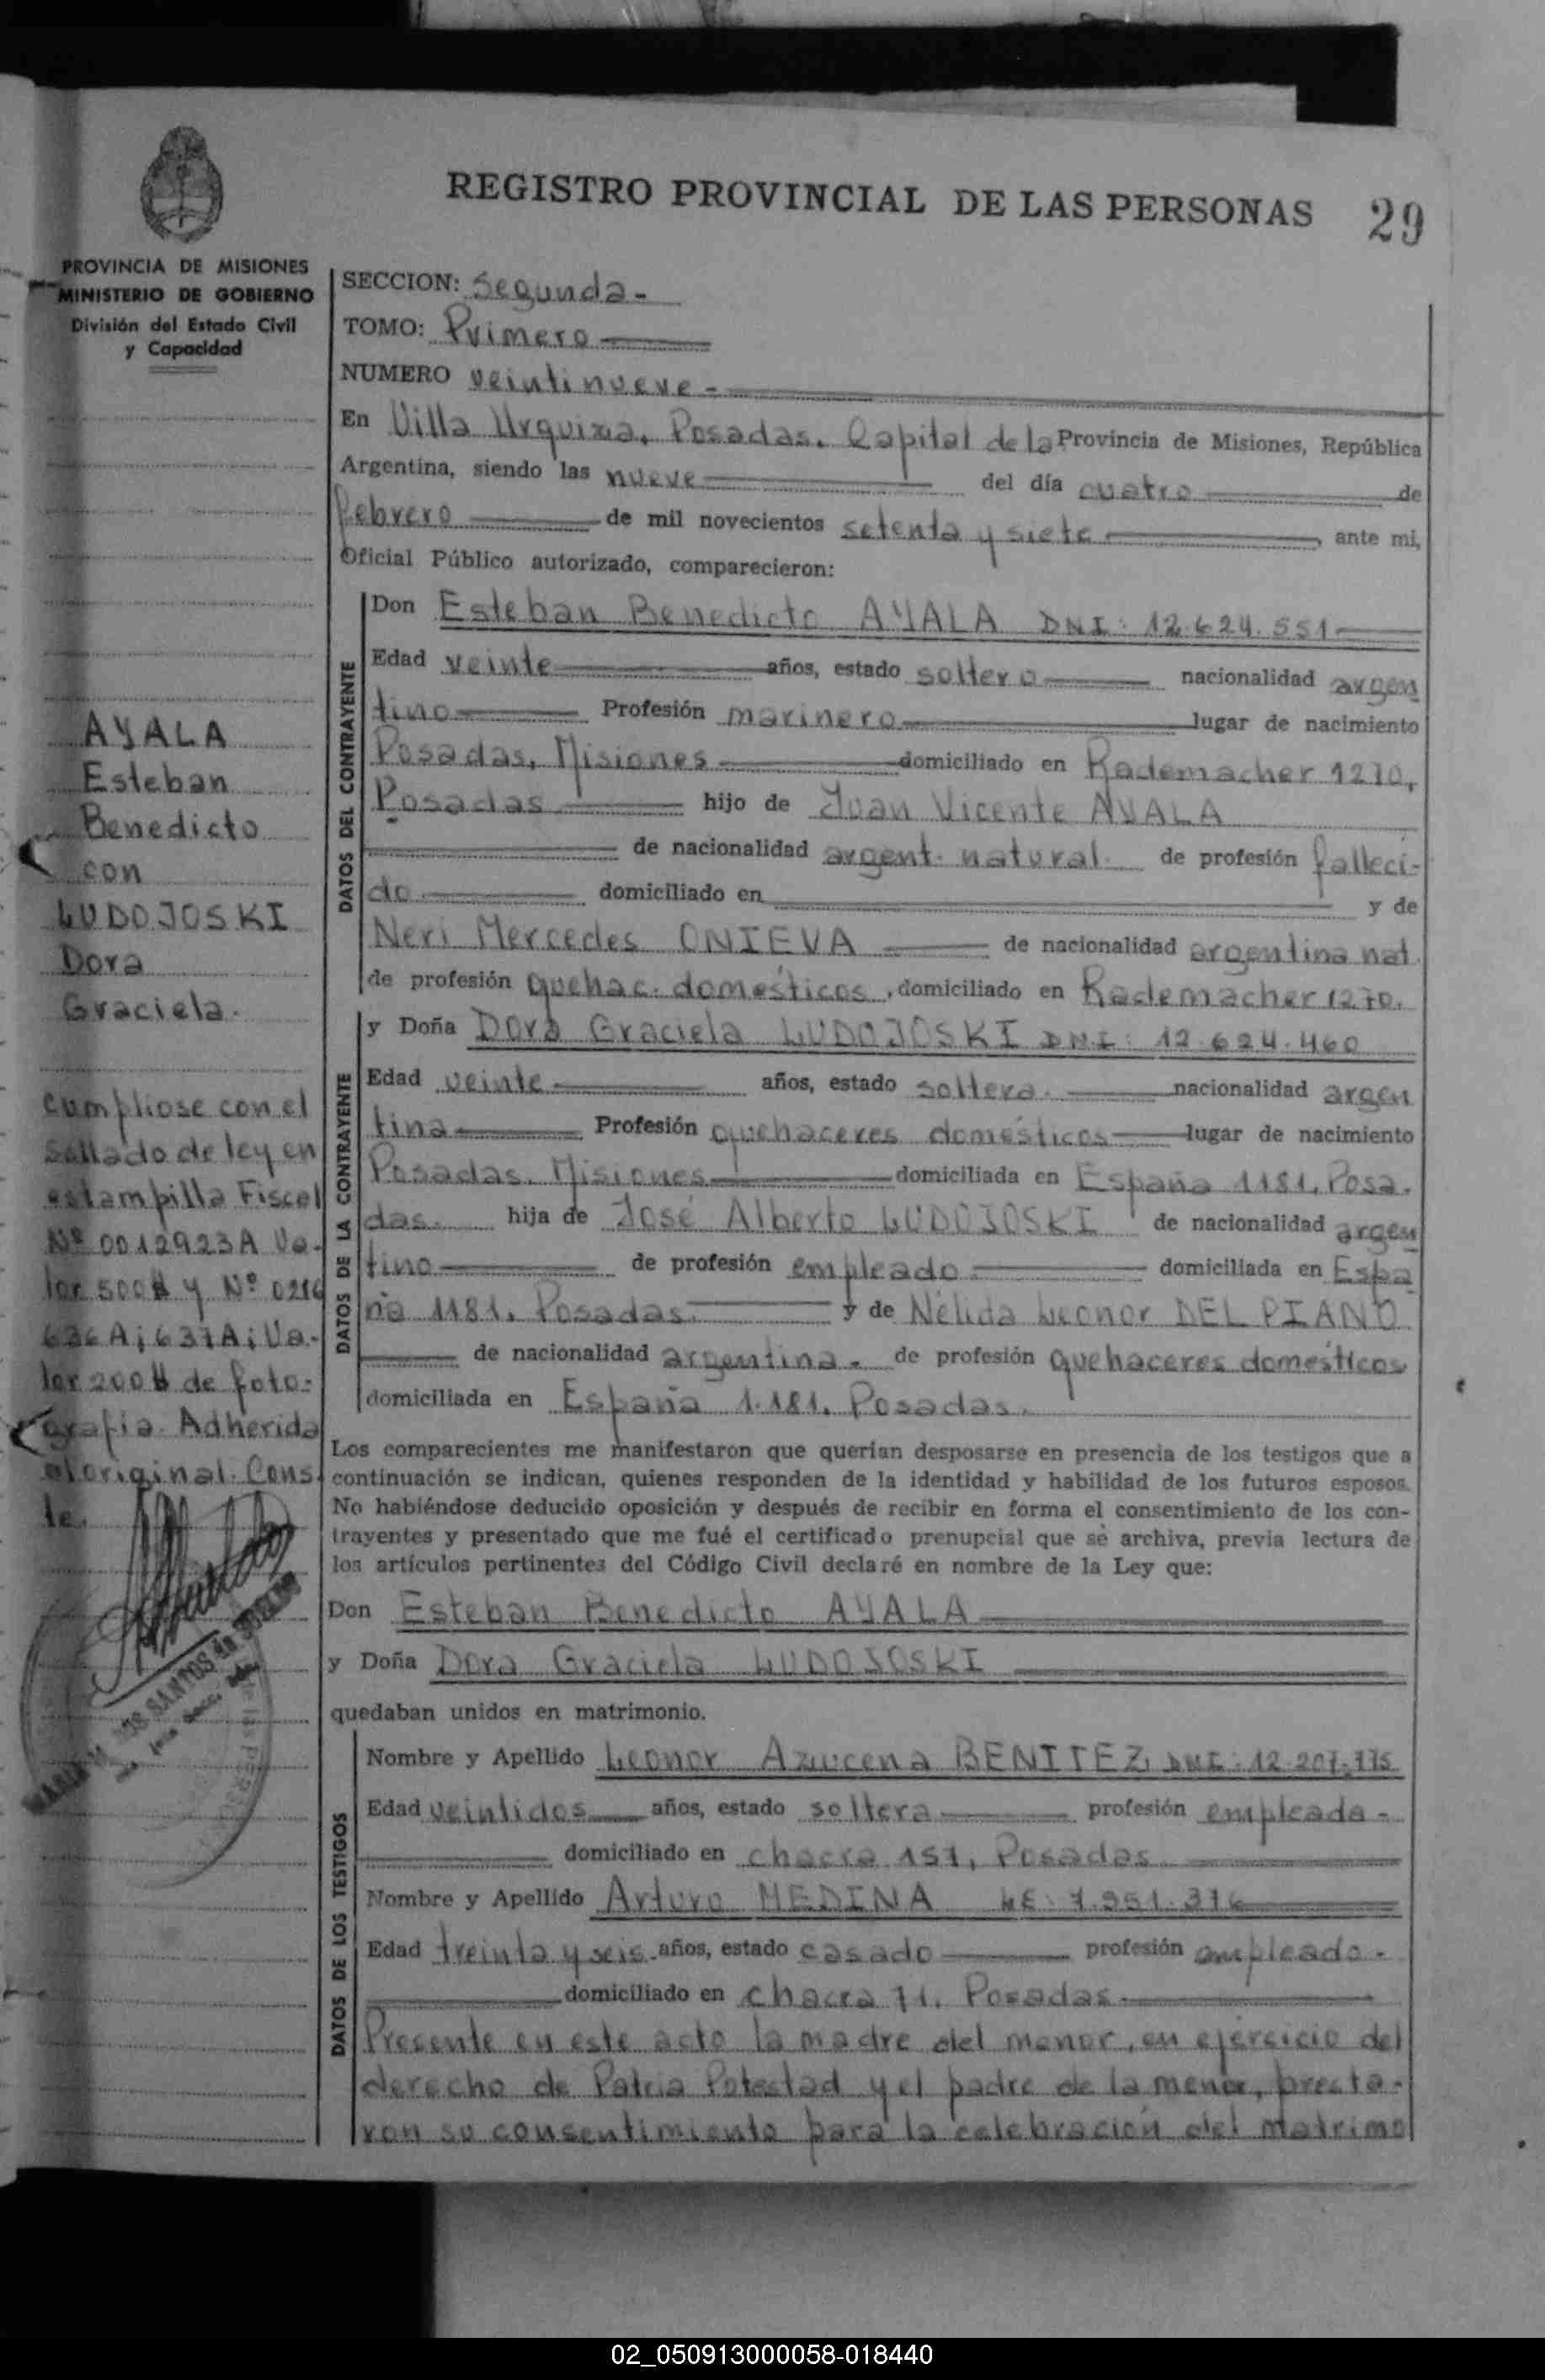 REGISTRO PROVINCIAL DE LAS PERSONAS 29
PROVINCIA DE MISIONES
MINISTERIO DE GOBIERNO
División del Estado Civil
y Capacidad
AYALA
Esteban
Benedicto
con
LUDOJOSKI
Dora
Graciela.
Cumpliose con el
Sellado de ley en
estampilla Fiscal
Nº 0012923A Va-
lor 500$ y Nº 0216
636A; 637A; Va-
lor 200$ de foto-
grafia. Adherida
al original. Cons
te.
SANTOS de
SECCION: Segunda-
TOMO: Primero
NUMERO veintinueve-
En Villa Urquiza, Posadas, Capital de la Provincia de Misiones, República
Argentina, siendo las nueve del día cuatro de
febrero de mil novecientos setenta y siete, ante mi,
Oficial Público autorizado, comparecieron:
DATOS DEL CONTRAYENTE
Don Esteban Benedicto AYALA DNI: 12.624.551
Edad veinte años, estado soltero nacionalidad argen
tino Profesión marinero lugar de nacimiento
Posadas, Misiones domiciliado en Rademacher 1270,
Posadas hijo de Juan Vicente AYALA
de nacionalidad argent. natural. de profesión falleci-
do domiciliado en y de
Neri Mercedes ONIEVA de nacionalidad argentina nat.
de profesión quehac. domésticos, domiciliado en Rademacher 1270.
DATOS DE LA CONTRAYENTE
y Doña Dora Graciela LUDOJOSKI DNI: 12.624.460
Edad veinte años, estado soltera. nacionalidad argen
tina Profesión quehaceres domésticos lugar de nacimiento
Posadas, Misiones domiciliada en España 1181, Posa-
das. hija de José Alberto LUDOJOSKI de nacionalidad argen
tino de profesión empleado domiciliada en Espa
ña 1181, Posadas. y de Nélida Leonor DEL PIANO
de nacionalidad argentina. de profesión quehaceres domésticos
domiciliada en España 1.181. Posadas.
Los comparecientes me manifestaron que querían desposarse en presencia de los testigos que a
continuación se indican, quienes responden de la identidad y habilidad de los futuros esposos.
No habiéndose deducido oposición y después de recibir en forma el consentimiento de los con-
trayentes y presentado que me fué el certificado prenupcial que se archiva, previa lectura de
los artículos pertinentes del Código Civil declaré en nombre de la Ley que:
Don Esteban Benedicto AYALA
y Doña Dora Graciela LUDOJOSKI
quedaban unidos en matrimonio.
DATOS DE LOS TESTIGOS
Nombre y Apellido Leonor Azucena BENITEZ, DNI: 12.207.775
Edad veintidos años, estado soltera profesión empleada-
domiciliado en chacra 157, Posadas
Nombre y Apellido Arturo MEDINA LE: 7.951.376
Edad treinta y seis años, estado casado profesión empleado.
domiciliado en chacra 71. Posadas
Presente en este acto la madre del menor, en ejercicio del
derecho de Patria Potestad y el padre de la menor, presta-
ron su consentimiento para la celebración del matrimo
02_050913000058-018440